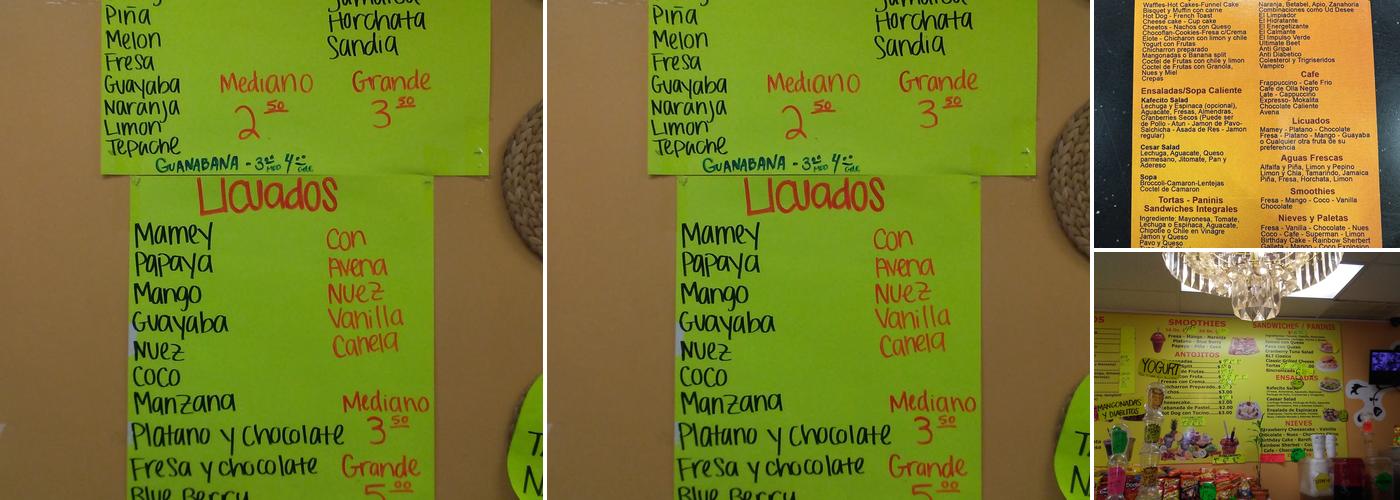 Piña
Melon
Fresa
Guayaba
Naranja
Limon
Tepache
Horchata
Sandia
Mediano
2 50
Grande
3 50
GUANABANA - 3 50 MED 4 50 GDE
Licuados
Mamey
Papaya
Mango
Guayaba
Nuez
Coco
Manzana
Platano y Chocolate
Fresa y chocolate
Blue Berry
Con
Avena
Nuez
Vanilla
Canela
Mediano
3 50
Grande
5 00
Piña
Melon
Fresa
Guayaba
Naranja
Limon
Tepache
Horchata
Sandia
Mediano
2 50
Grande
3 50
GUANABANA - 3 50 MED 4 50 GDE
Licuados
Mamey
Papaya
Mango
Guayaba
Nuez
Coco
Manzana
Platano y Chocolate
Fresa y chocolate
Blue Berry
Con
Avena
Nuez
Vanilla
Canela
Mediano
3 50
Grande
5 00
Waffles-Hot Cakes-Funnel Cake
Bisquet y Muffin con carne
Hot Dog - French Toast
Cheese cake - Cup cake
Cheetos - Nachos con Queso
Chocoflan-Cookies-Fresa c/Crema
Elote - Chicharon con limon y chile
Yogurt con Frutas
Chicharron preparado
Mangonadas o Banana split
Coctel de Frutas con chile y limon
Coctel de Frutas con Granola,
Nues y Miel
Crepas
Ensaladas/Sopa Caliente
Kafecito Salad
Lechuga y Espinaca (opcional),
Aguacate, Fresas, Almendras,
Cranberries Secos (Puede ser
de Pollo - Atun - Jamon de Pavo-
Salchicha - Asada de Res - Jamon
regular)
Cesar Salad
Lechuga, Aguacate, Queso
parmesano, Jitomate, Pan y
Adereso
Sopa
Broccoli-Camaron-Lentejas
Coctel de Camaron
Tortas - Paninis
Sandwiches Integrales
Ingrediente: Mayonesa, Tomate,
Lechuga o Espinaca, Aguacate,
Chipotle o Chile en Vinagre
Jamon y Queso
Pavo y Queso
Naranja, Betabel, Apio, Zanahoria
Combinaciones como Ud Desee
El Limpiador
El Hidratante
El Energetizante
El Calmante
El Impulso Verde
Ultimate Beet
Anti Gripal
Anti Diabetico
Colesterol y Trigriseridos
Vampiro
Cafe
Frappuccino - Cafe Frio
Cafe de Olla Negro
Late - Cappuccino
Expresso- Mokalita
Chocolate Caliente
Avena
Licuados
Mamey - Platano - Chocolate
Fresa - Platano - Mango - Guayaba
o Cualquier otra fruta de su
preferencia
Aguas Frescas
Alfalfa y Piña, Limon y Pepino
Limon y Chia, Tamarindo, Jamaica
Piña, Fresa, Horchata, Limon
Smoothies
Fresa - Mango - Coco - Vanilla
Chocolate
Nieves y Paletas
Fresa - Vanilla - Chocolate - Nues
Coco - Cafe - Superman - Limon
Birthday Cake - Rainbow Sherbert
SMOOTHIES
Fresa - Mango - Naranja
Platano - Blue Berry
Papaya - Piña - Coco
ANTOJITOS
YOGURT
MANGONADAS
Y DIABLITOS
SANDWICHES / PANINIS
Cranberry Tuna Salad
BLT Clasico
Classic Grilled Cheese
Tortas
ENSALADAS
Kafecito Salad
Cesar Salad
Ensalada de Espinacas
NIEVES
Strawberry Cheesecake - Vanilla